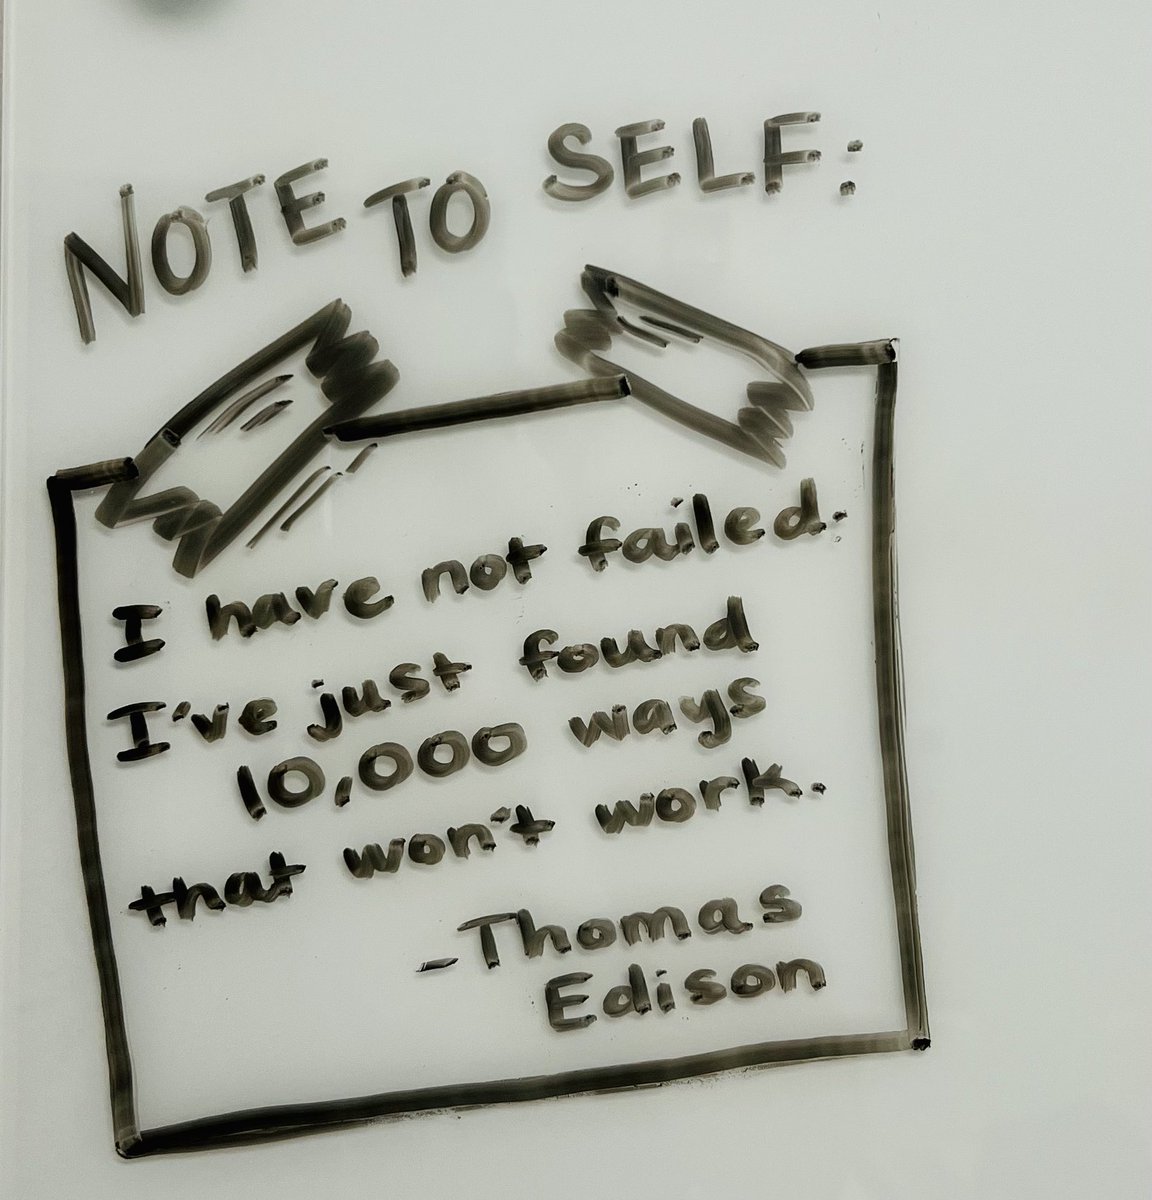 NOTE TO SELF:
I have not failed.
I've just found
10,000 ways
that won't work.
-Thomas
Edison